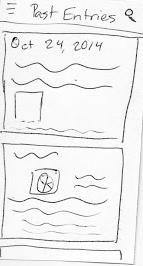 Past Entries
Oct 24, 2014